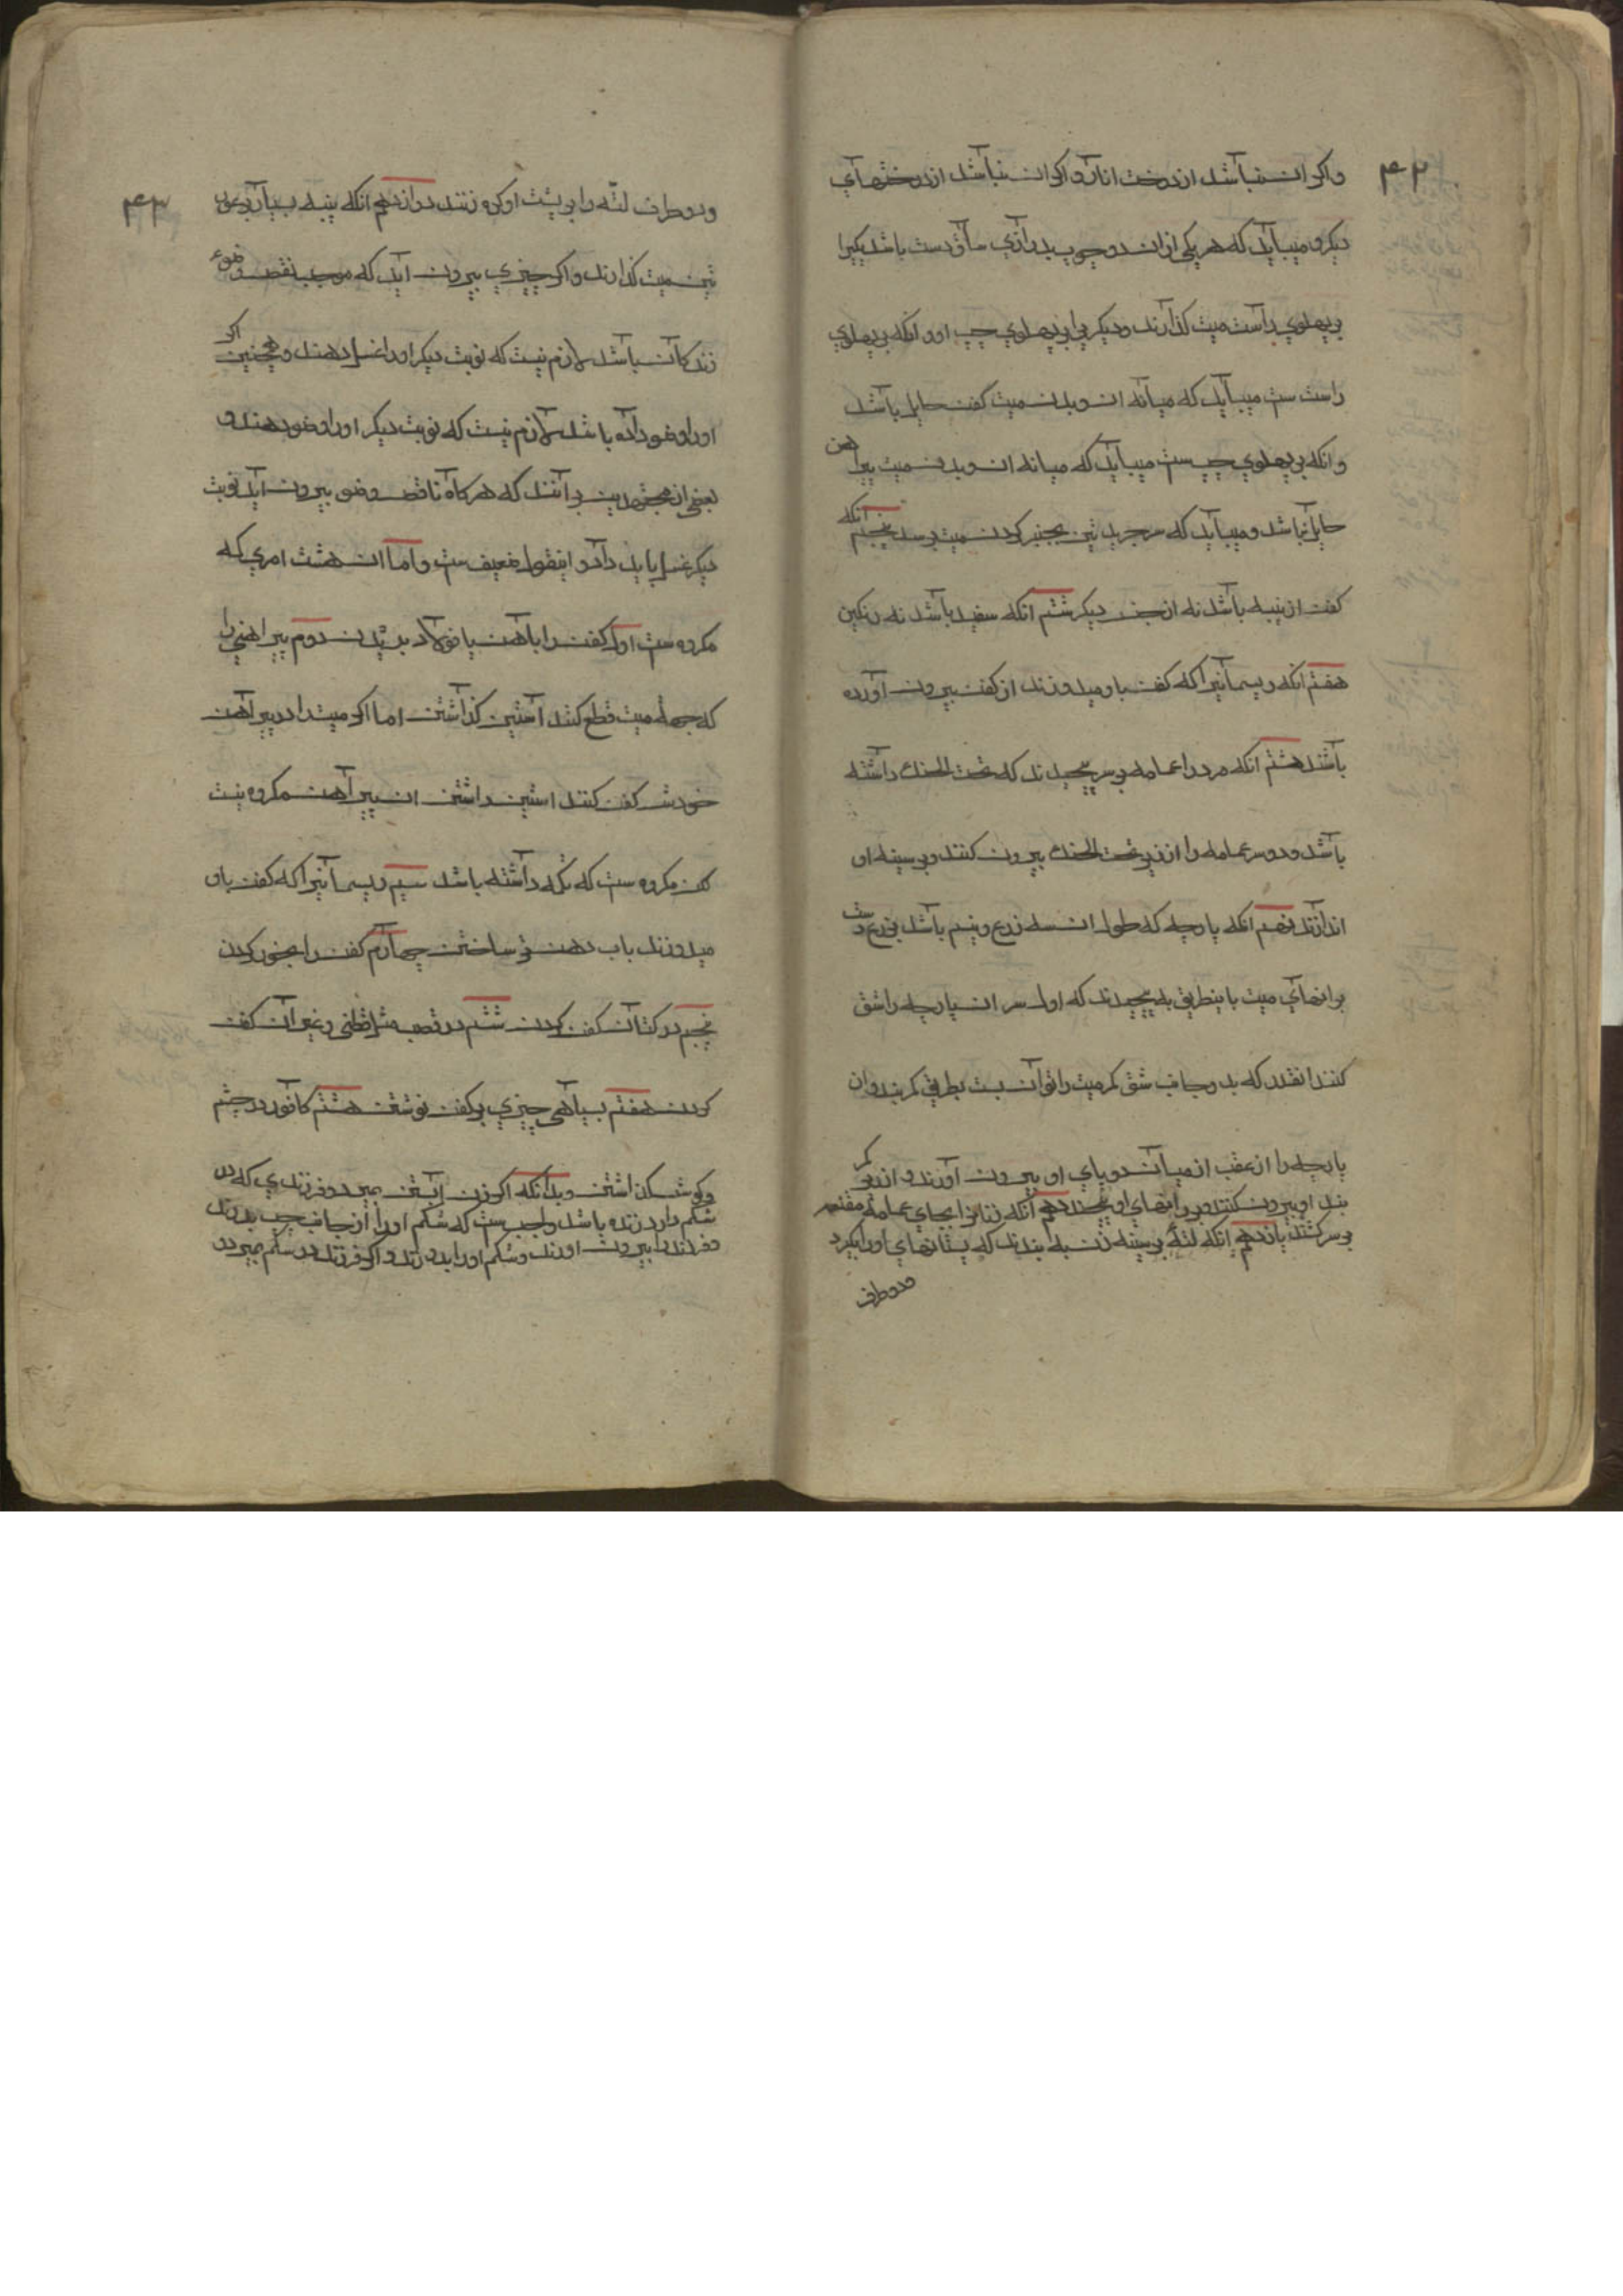 ۴۲
واکر ان نباشد از درخت انار و اکر ان نباشد از درختهای
دیکر و میباید که هر یکی از ان دو چوب بدرازی ساق دست باشد یکیرا
بر پهلوی راست میت کذارند و دیکری را بر پهلوی چپ او و انکه بر پهلوی
راست ست میباید که میانه ان و بدن میت کفن حایل باشد
و انکه بر پهلوی چپ ست میباید که میانه ان و بدن میت پیراهن
حایل نباشد و میباید که سر جریدتین بچنبر کردن میت برسد پنجم انکه
کفن از پنبه باشد نه از جنس دیکر ششم انکه سفید باشد نه رنکین
هفتم انکه ریسمانیرا که کفن باو میدوزند از کفن بیرون آورده
باشند هشتم انکه مرد را عمامه بر سر پیچیدند که تحت الحنک داشته
باشد و دو سر عمامه را از زیر تحت الحنک بیرون کنند و بر سینه او
اندازند نهم انکه پارچه که طول ان سه ذرع و نیم باشد بذرع دست
برانهای میت باینطریق به پیچیدند که اول سر ان پارچه را شق
کنند انقدر که بدو جانب شق کمر میت را توان بست بطریق کمربند و ان
پارچه را از عقب از میان دو پای او بیرون آورند و از زیر کمر
بند او بیرون کنند و بر رانهای او پیچند دهم انکه زنانرا بجای عمامه مقنعه
بر سر کشند یازدهم انکه لته بر سینه زن به بندند که پستانهای او را بکیرد
و دو طرف
۴۳
و دو طرف لته را بر پشت او کره زنند دوازدهم انکه پنبه بسیار بر عو
تین میت کذارند و اکر چیزی بیرون آید که موجب نقص وضوء
زندکان باشد لازم نیست که نوبت دیکر او را غسل دهند و همچنین اکر
او را وضو داده باشد لازم نیست که نوبت دیکر او را وضو دهند و
بعضی از مجتهدین برآنند که هرکاه ناقض وضو بیرون آید نوبت
دیکر غسل باید داد و اینقول ضعیف ست و اما ان هشت امری که
مکروه ست اول کفن را باهن یا فولاد بریدن دوم پیراهنی را
که جهة میت قطع کنند آستین کذاشتن اما اکر میت را در پیراهن
خودش کفن کنند استین داشتن ان پیراهن مکروه نیست
لکن مکروه ست که تکمه داشته باشد سیم ریسمانیرا که کفن باو
میدوزند باب دهن تر ساختن چهارم کفن را بخور کردن
پنجم در کتان کفن کردن ششم در قصب مثل قطنی و غیر آن کفن
کردن هفتم بسیاهی چیزی بر کفن نوشتن هشتم کافور در چشم
و کوشش کذاشتن و بدانکه اکر زن آبستن میرد و فرزندی که در
شکم دارد زنده باشد واجب ست که شکم او را از جانب چپ بدرند
و فرزند را بیرون اورند و شکم او را بدوزند و اکر فرزند در شکم میرد در